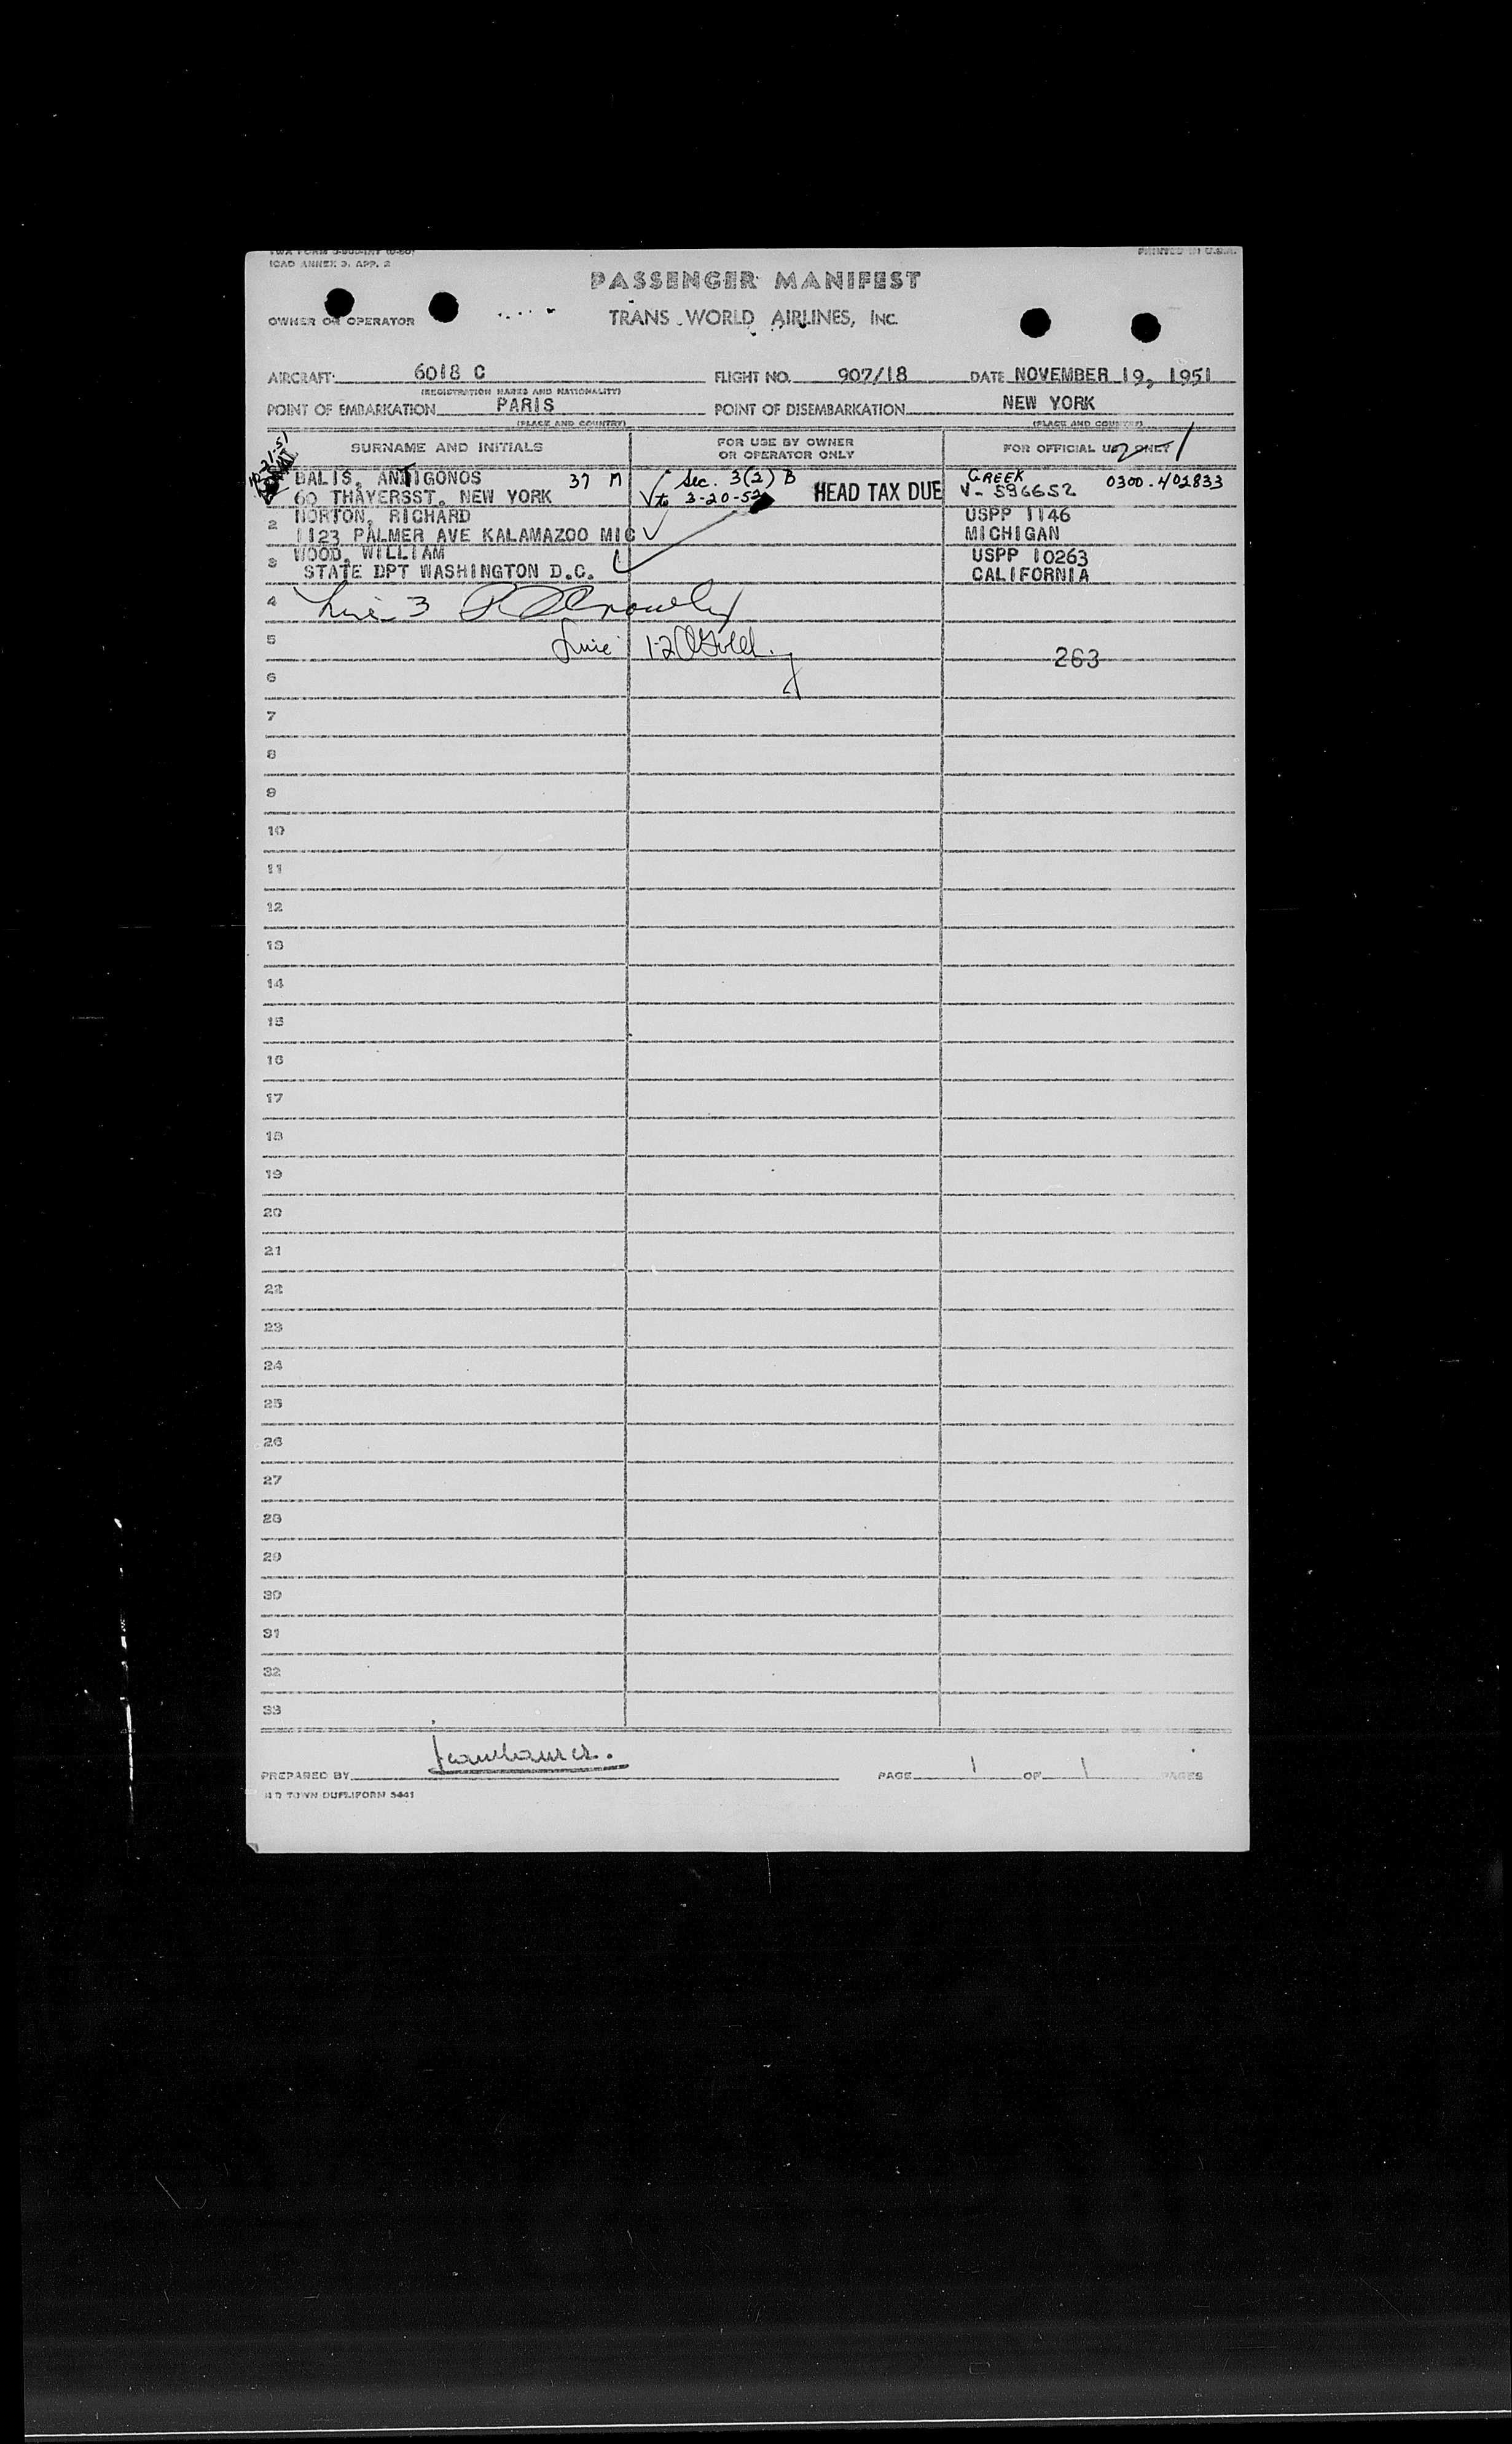 ICAO ANNEX 9, APP. 2
PRINTED IN U.S.A.
PASSENGER MANIFEST
OWNER OR OPERATOR TRANS WORLD AIRLINES, INC.
AIRCRAFT 6018 C FLIGHT NO. 907/18 DATE NOVEMBER 19, 1951
(REGISTRATION MARKS AND NATIONALITY)
POINT OF EMBARKATION PARIS POINT OF DISEMBARKATION NEW YORK
(PLACE AND COUNTRY) (PLACE AND COUNTRY)
SURNAME AND INITIALS FOR USE BY OWNER OR OPERATOR ONLY FOR OFFICIAL USE ONLY 2 1
DALIS, ANTIGONOS 37 M Sec. 3(2) B HEAD TAX DUE GREEK 0300-402833
60 THAYERSST. NEW YORK to 3-20-52 V-596652
2 NORTON, RICHARD USPP 1146
1123 PALMER AVE KALAMAZOO MIC MICHIGAN
3 WOOD, WILLIAM USPP 10263
STATE DPT WASHINGTON D.C. CALIFORNIA
4 Line 3
5 Line 1-2 263
6
7
8
9
10
11
12
13
14
15
16
17
18
19
20
21
22
23
24
25
26
27
28
29
30
31
32
33
PREPARED BY PAGE 1 OF 1 PAGES